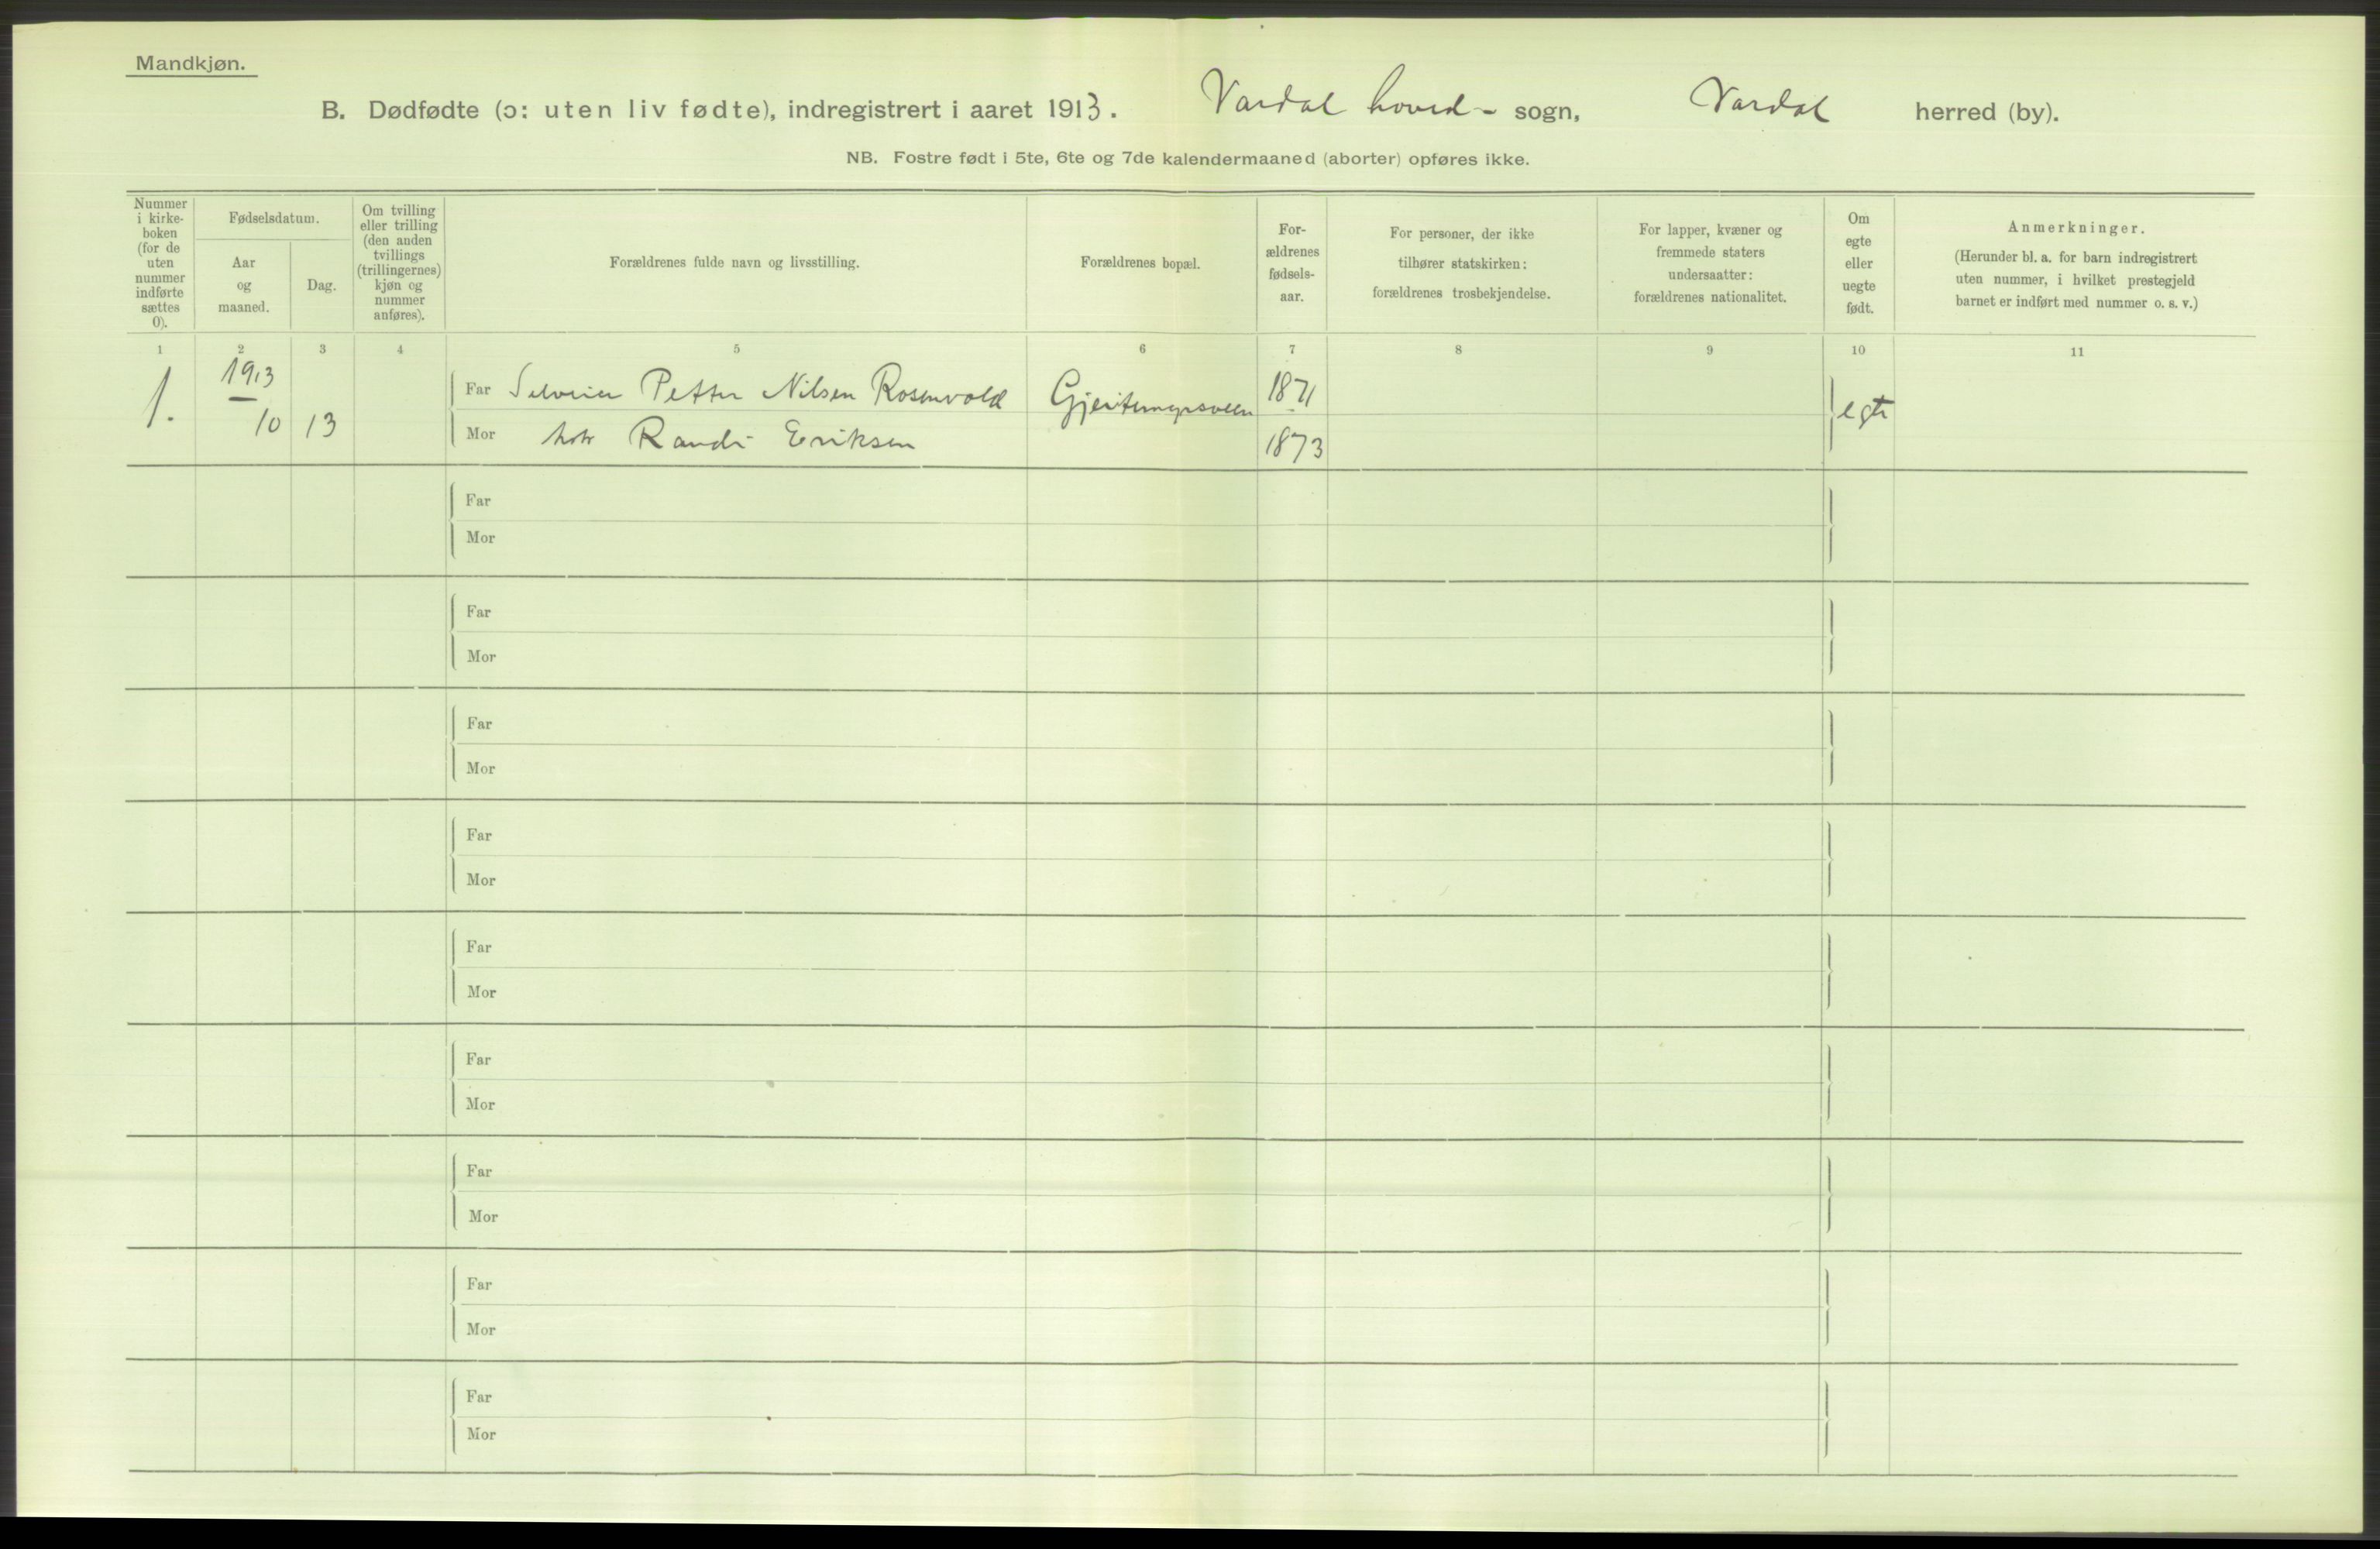 Mandkjøn.
B. Dødfødte (ɔ: uten liv fødte), indregistrert i aaret 1913. Vardal hoved- sogn, Vardal herred (by).
NB. Fostre født i 5te, 6te og 7de kalendermaaned (aborter) opføres ikke.
Nummer
i kirke-
boken
(for de
uten
nummer
indførte
sættes
0).
Fødselsdatum.
Aar
og
maaned.
Dag.
Om tvilling
eller trilling
(den anden
tvillings
(trillingernes)
kjøn og
nummer
anføres).
Forældrenes fulde navn og livsstilling.
Forældrenes bopæl.
For-
ældrenes
fødsels-
aar.
For personer, der ikke
tilhører statskirken:
forældrenes trosbekjendelse.
For lapper, kvæner og
fremmede staters
undersaatter:
forældrenes nationalitet.
Om
egte
eller
uegte
født.
Anmerkninger.
(Herunder bl. a. for barn indregistrert
uten nummer, i hvilket prestegjeld
barnet er indført med nummer o. s. v.)
1 2 3 4 5 6 7 8 9 10 11
1. 1913 10 13
Far Petter Nilsen Rosenvold 1871 egte
Mor Randi Eriksen 1873
Far
Mor
Far
Mor
Far
Mor
Far
Mor
Far
Mor
Far
Mor
Far
Mor
Far
Mor
Far
Mor